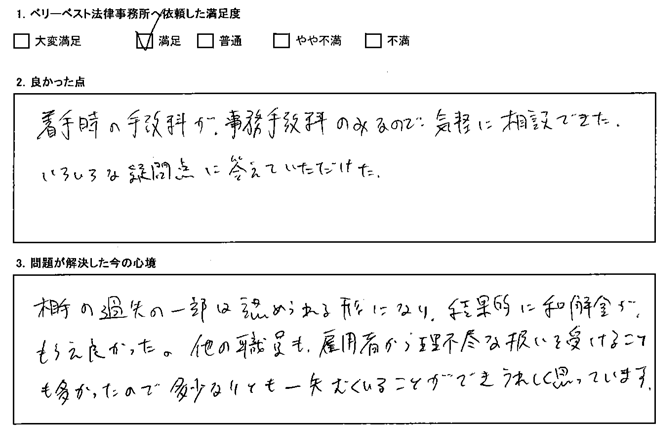 1. ベリーベスト法律事務所へ依頼した満足度
□ 大変満足 ☑ 満足 □ 普通 □ やや不満 □ 不満
2. 良かった点
着手時の手数料が、事務手数料のみなので気軽に相談できた。
いろいろな疑問点に答えていただけた。
3. 問題が解決した今の心境
相手の過失の一部は認められる形になり、結果的に和解金が、
もらえ良かった。他の職員も、雇用者から理不尽な扱いを受けること
も多かったので多少なりとも一矢むくいることができうれしく思っています。